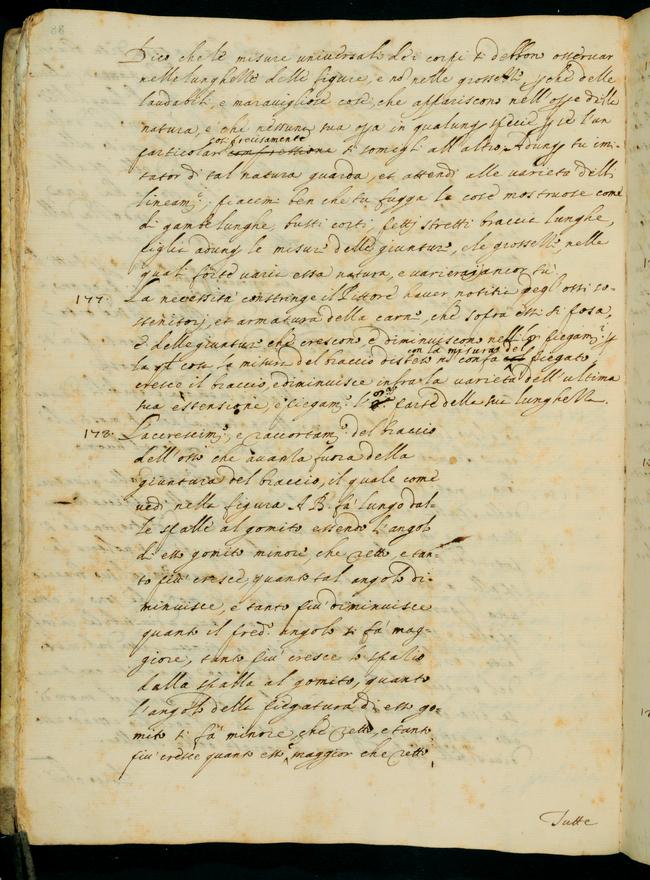 88
Dico che le misure universali dei corpi si debbon osservar
nelle lunghezze delle figure, e nõ nelle grossezze, pche delle
laudabili, e maravigliose cose, che appariscon nell'opse della
natura, e che nessuna sua opa in qualunq spècie p se l'un
cosi precisamente
particolar si somegli all'altro. Adunq tu imi-
tator di tal natura guarda, et attendi alle varietà delli
lineam.ti; piacemi ben che tu fugga le cose mostruose come
di gambe lunghe, busti corti, petti stretti braccie lunghe,
piglia adunq le misure delle giunture, e le grossezze, nelle
quali forte varia essa natura, e varierai ancor tu.
177. La necessità constringe il Pittore haver notitia degl'ossi so-
stenitori, et armatura della carne, che sopra essi si posa,
e delle giunture che crescon, e diminuiscon nelli lor piegam.ti p
con la misura del
la ql cosa la misura del braccio disteso nõ confà piegato
cresce il braccio, e diminuisce infra la varietà dell'ultima
sua estensione, e piegam.to l' parte della sua lunghezza.
178. L'accrescim.to, e raccortam.to del braccio
dell'osso che avanza fuora della
giuntura del braccio, il quale come
vedi nella figura A B. fa lungo dal-
le spalle al gomito essendo l'angolo
di esso gomito minore, che retto, e tan-
to più cresce, quanto tal angolo di-
minuisce, e tanto più diminuisce
quanto il pred.o angolo si fà mag-
giore, tanto più cresce lo spatio
dalla spalla al gomito, quanto
l'angolo della piegatura di esso go-
mito si fà minore, che retto, e tanto
più cresce quanto esso è maggior che retto
Tutte